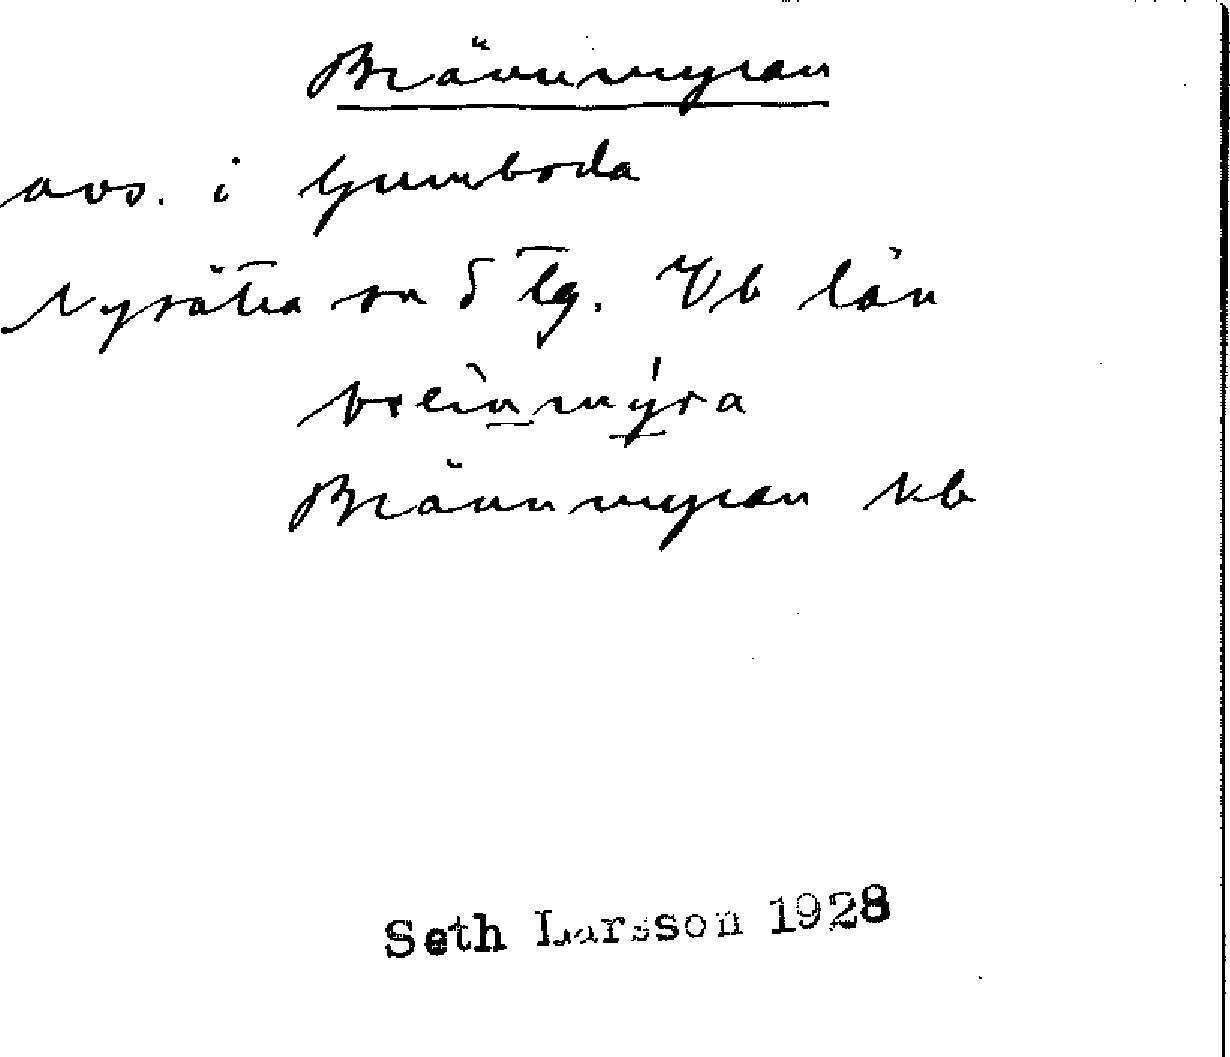 Brännmyran
avs. i Gumboda
Nysätra sn S tg. Vb län
Brännmyran kb
Seth Larsson 1928